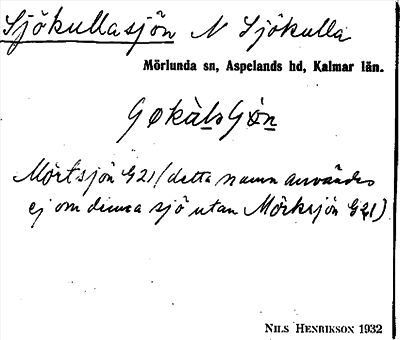 Sjökullasjön N Sjökulla
Mörlunda sn, Aspelands hd, Kalmar län.
Mörtsjön G21 (detta namn användes
ej om denna sjö utan Mörksjön G21)
NILS HENRIKSON 1932